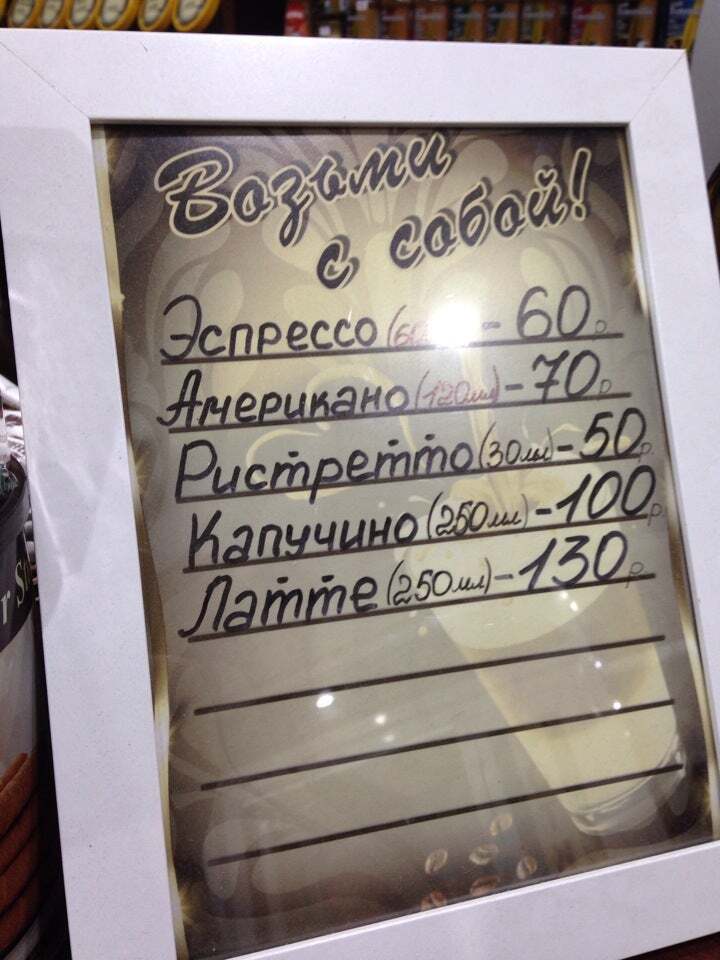 Возьми
с собой!
Эспрессо - 60р
Американо (120мл) - 70р
Ристретто (30мл) - 50р
Капучино (250мл) - 100р
Латте (250мл) - 130р